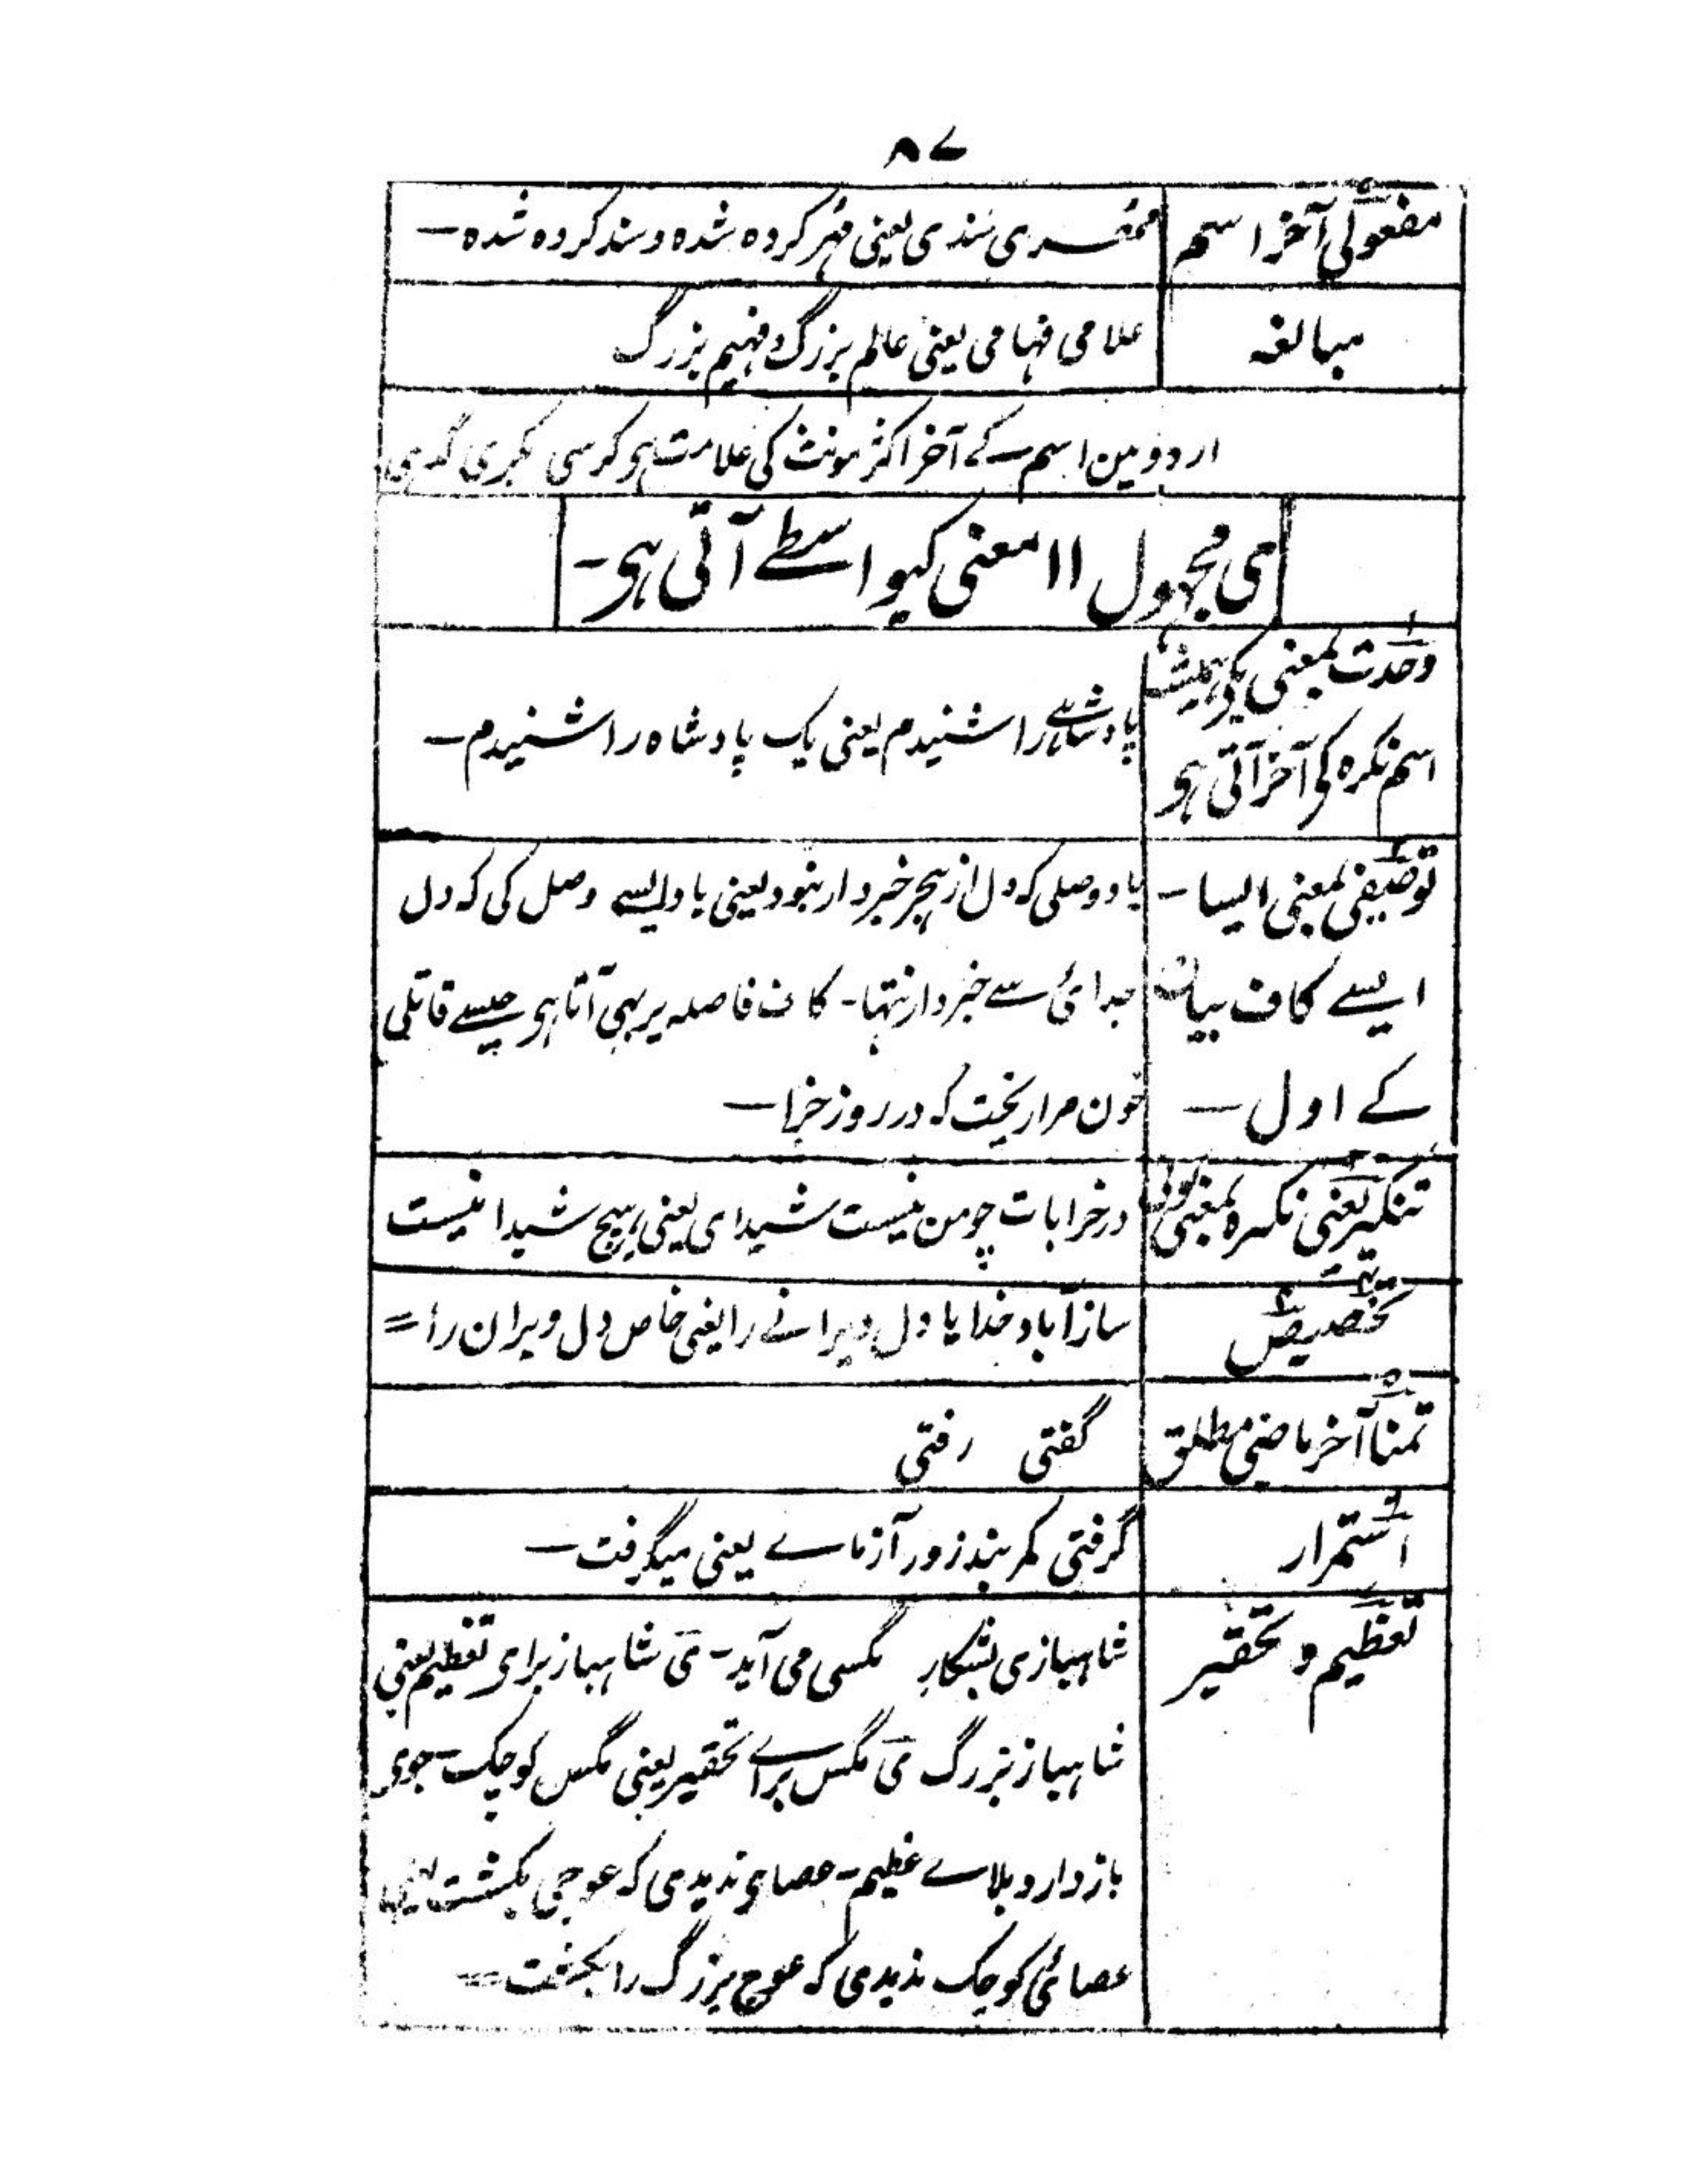 ۸۷
مفعولی آخر اسم مُہری سندی یعنی مُہر کردہ شدہ و سند کردہ شدہ ۔
مبالغہ علامی فہامی یعنی عالم بزرگ و فہیم بزرگ
اردو مین اسم کے آخر اکثر مونث کی علامت ہو کرسی بکری گدہی
ی مجہول ۱۱ معنی کیواسطے آتی ہی ۔
وحدت بمعنی یکی ہمیشہ
پادشاہے را شنیدم یعنی یک پادشاہ را شنیدم ۔
اسم نکرہ کی آخر آتی ہی
توصیفی بمعنی ایسا ۔ یاد وصلی کہ دل از ہجر خبردار نبود یعنی یاد ایسے وصل کی کہ دل
ایسے کاف بیان جدائی سے خبردار نتہا ۔ کاف فاصلہ پر بہی آتا ہی جیسے قاتلی
کے اول ۔ خون مرا ریخت کہ در روز جزا ۔
تنکیر یعنی نکرہ بمعنی در خرابات چو من نیست شیدای یعنی ہیچ شیدا نیست
تخصیص ساز آباد خدایا دل ویرانے را یعنی خاص دل ویران را =
تمنا آخر ماضی مطلق گفتی رفتی
استمرار گرفتی کمر بند زور آزماے یعنی میگرفت ۔
تعظیم و تحقیر شاہبازی بشکار مگسی می آید ۔ ی شاہباز برای تعظیم یعنی
شاہباز بزرگ ی مگس براے تحقیر یعنی مگس کوچک ۔ جوی
باز دارد بلاے عظیم ۔ عصای ندیدی کہ عوجی بکشت یعنی
عصائی کوچک ندیدی کہ عوج بزرگ را بکشت =